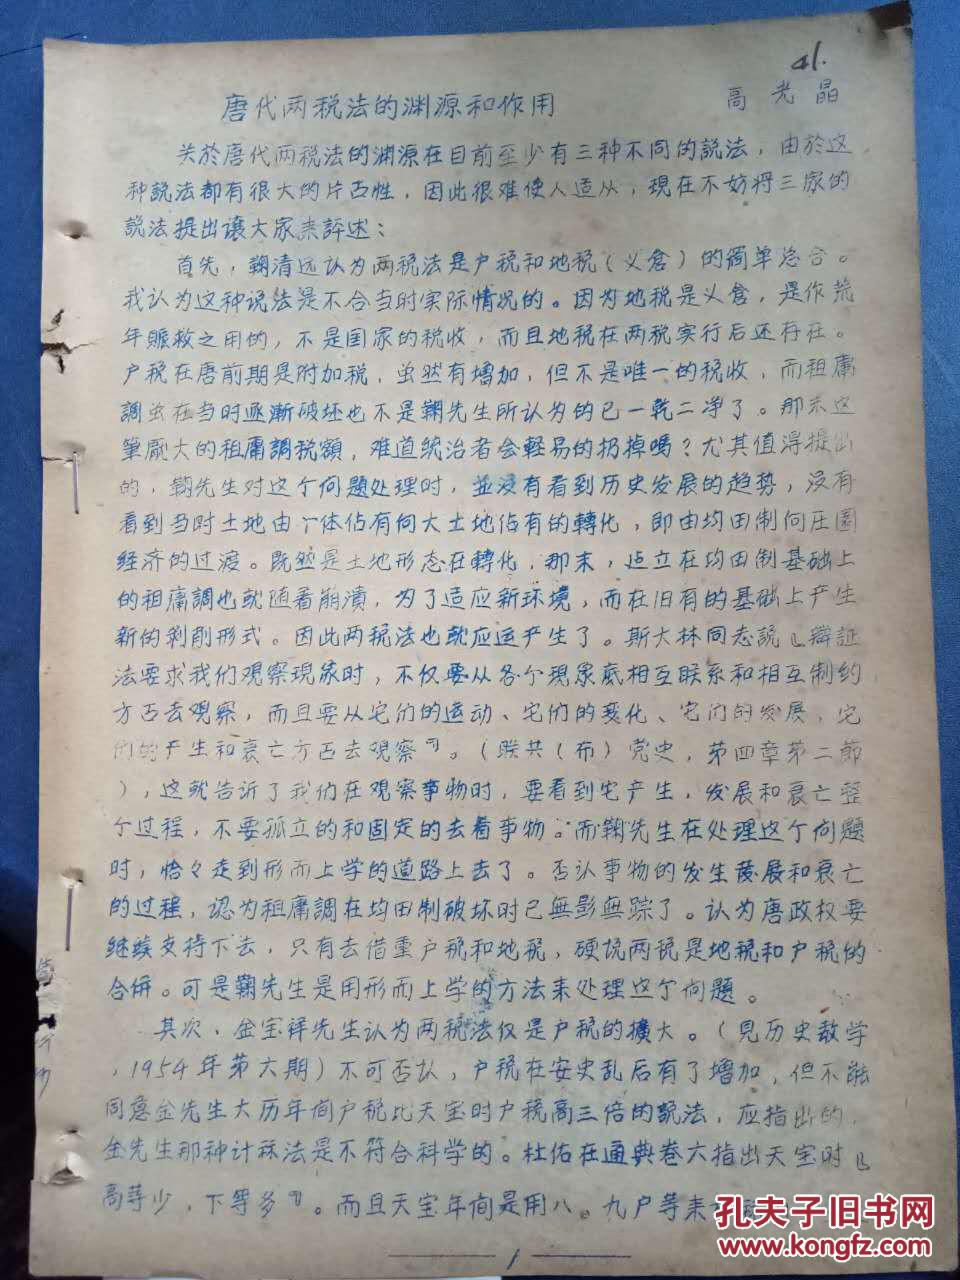 41.
唐代两税法的渊源和作用
高光晶
关於唐代两税法的渊源在目前至少有三种不同的説法，由於这
种說法都有很大的片面性，因此很难使人适从，现在不妨将三家的
說法提出讓大家来評述：
首先，鞠清远认为两税法是户税和地税（义倉）的简单总合。
我认为这种说法是不合当时实际情况的。因为地税是义倉，是作荒
年賑救之用的，不是国家的税收，而且地税在两税实行后还存在。
户税在唐前期是附加税，虽然有增加，但不是唯一的税收，而租庸
調虽在当时逐漸破坯也不是鞠先生所认为的已一乾二净了。那末这
筆厖大的租庸調税額，难道統治者会輕易的扔掉嗎？尤其值得提出
的，鞠先生对这个问题处理时，並没有看到历史发展的趋势，没有
看到当时土地由个体佔有向大土地佔有的轉化，即由均田制向庄園
经济的过渡。既然是土地形态在轉化，那末，建立在均田制基础上
的祖庸調也就随着崩潰，为了适应新环境，而在旧有的基础上产生
新的剥削形式。因此两税法也就应运产生了。斯大林同志説「辯証
法要求我们观察现象时，不仅要从各个现象底相互联系和相互制约
方面去观察，而且要从它们的运动、它们的变化、它们的发展，它
们的产生和衰亡方面去观察」。（联共（布）党史，第四章第二節
），这就告诉了我们在观察事物时，要看到它产生，发展和衰亡整
个过程，不要孤立的和固定的去看事物。而鞠先生在处理这个问题
时，恰々走到形而上学的道路上去了。否认事物的发生發展和衰亡
的过程，认为租庸調在均田制破坏时已無影無踪了。认为唐政权要
继续支持下去，只有去借重户税和地税，硬说两税是地税和户税的
合併。可是鞠先生是用形而上学的方法来处理这个问题。
其次，金宝祥先生认为两税法仅是户税的擴大。（見历史教学
，1954年第六期）不可否认，户税在安史乱后有了增加，但不能
同意金先生大历年间户税比天宝时户税高三倍的説法，应指出的，
金先生那种计秝法是不符合科学的。杜佑在通典卷六指出天宝时「
高等少，下等多」。而且天宝年间是用八。九户等来
1
孔夫子旧书网
www.kongfz.com